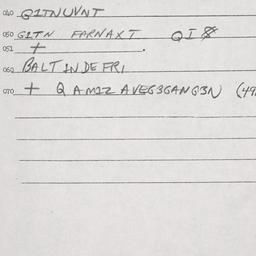 040 G1TNUVNT
050 G1TN FARNAXT QI8
051 +
060 BALTINDEFRI
070 + Q AM1Z AVEG3GANG3N (49